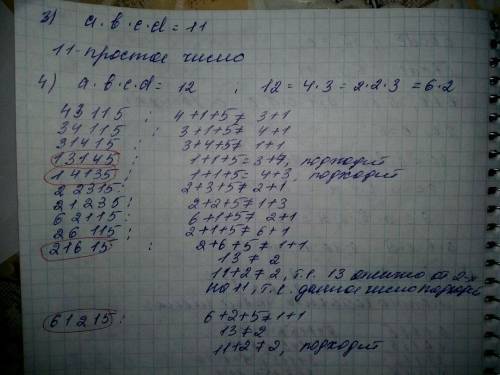 3) a·b·c·d = 11
11- простое число
4) a·b·c·d = 12 , 12 = 4·3 = 2·2·3 = 6·2
43115 ; 4+1+5≠ 3+1
34115 ; 3+1+5≠ 4+1
31415 ; 3+4+5≠ 1+1
13145 ; 1+1+5= 3+4, подходит
14135 ; 1+1+5= 4+3, подходит
22315 ; 2+3+5≠2+1
21235 ; 2+2+5≠1+3
62115 ; 6+1+5≠ 2+1
26115 ; 2+1+5≠ 6+1
21615 ; 2+6+5≠ 1+1
13≠2
11+2≠2, т.е. 13 от 2-х
на 11, т.е. данное число
61215 ; 6+2+5≠1+1
13≠2
11+2≠2, подходит